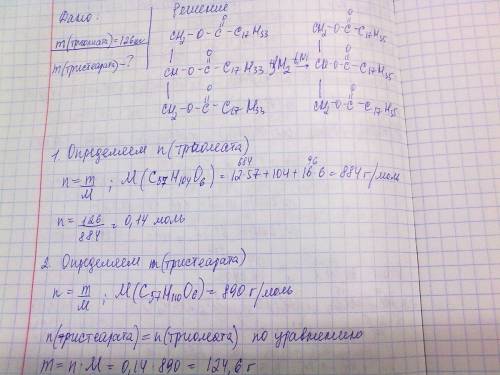 Дано:
Решение
m(триолеата)=126
m(тристеарат)-?
O O
CH₂-O-C-C₁₇H₃₃ CH₂-O-C-C₁₇H₃₅
O O
CH-O-C-C₁₇H₃₃ +3H₂ → CH-O-C-C₁₇H₃₅
O O
CH₂-O-C-C₁₇H₃₃ CH₂-O-C-C₁₇H₃₅
1. Определяем n(триолеата)
684 96
n = m/M ; M(C₅₇H₁₀₄O₆) = 12·57+104+16·6 = 884 г/моль
n = 126/884 = 0,14 моль
2. Определяем m(тристеарата)
n = m/M ; M(C₅₇H₁₁₀O₆) = 890 г/моль
n(тристеарата) = n(триолеата) по уравнению
m = n·M = 0,14·890 = 124,6 г